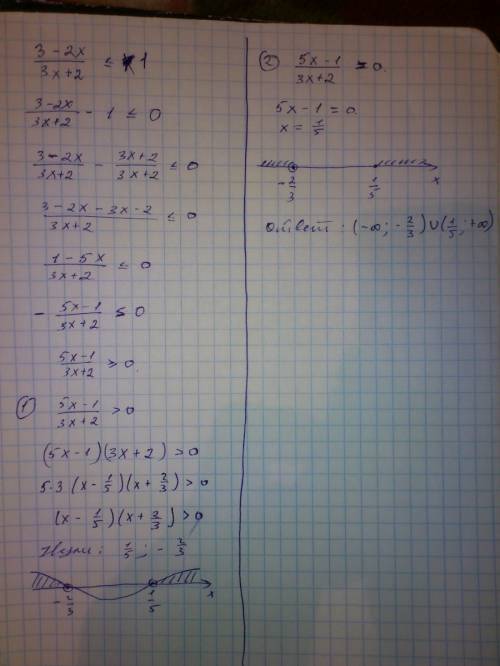 (3 - 2x)/(3x+2) ≤ 1
(3-2x)/(3x+2) - 1 ≤ 0
(3-2x)/(3x+2) - (3x+2)/(3x+2) ≤ 0
(3-2x-3x-2)/(3x+2) ≤ 0
(1-5x)/(3x+2) ≤ 0
- (5x-1)/(3x+2) ≤ 0
(5x-1)/(3x+2) ≥ 0.
① (5x-1)/(3x+2) > 0
(5x-1)(3x+2) > 0
5·3 (x - 1/5)(x + 2/3) > 0
(x - 1/5)(x + 2/3) > 0
Нули: 1/5 ; - 2/3
- 2/3 1/5 x
② (5x-1)/(3x+2) = 0.
5x-1 = 0.
x = 1/5
- 2/3 1/5 x
Ответ: (-∞; -2/3) ∪ (1/5; +∞)